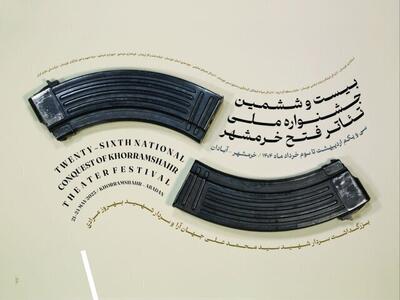 بیست و ششمین
جشنواره ملی
تئاتر فتح خرمشهر
سی و یکم اردیبهشت تا سوم خرداد ماه ۱۴۰۴ / خرمشهر - آبادان
TWENTY-SIXTH NATIONAL
CONQUEST OF KHORRAMSHAHR
THEATER FESTIVAL
21-24 MAY 2025 / KHORRAMSHAHR - ABADAN
بزرگداشت سردار شهید سید محمد علی جهان آرا و سردار شهید بهروز مرادی